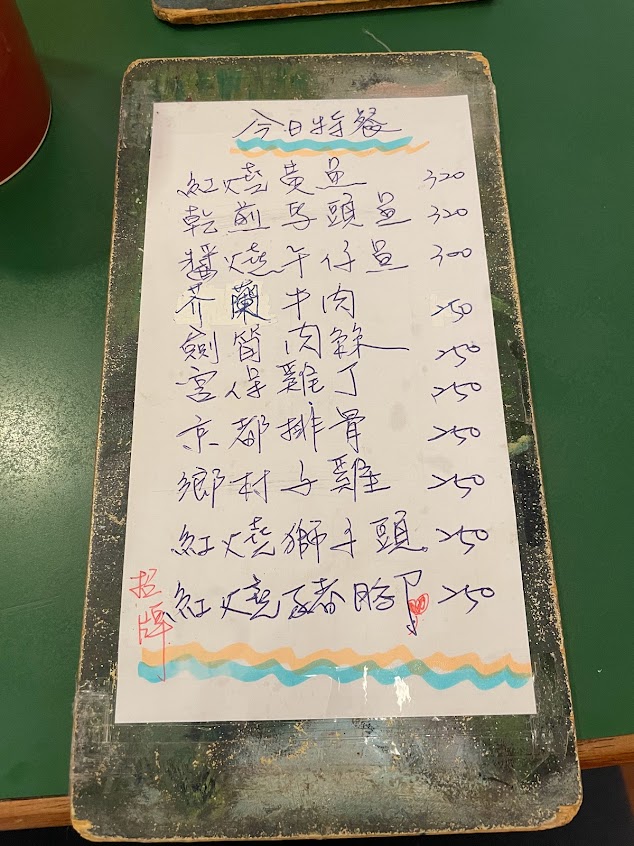 今日特餐
紅燒黃魚 320
乾煎馬頭魚 320
醬燒午仔魚 300
芥蘭牛肉 250
劍筍肉絲 250
宮保雞丁 250
京都排骨 250
鄉村子雞 250
紅燒獅子頭 250
招牌 紅燒豬腳 250